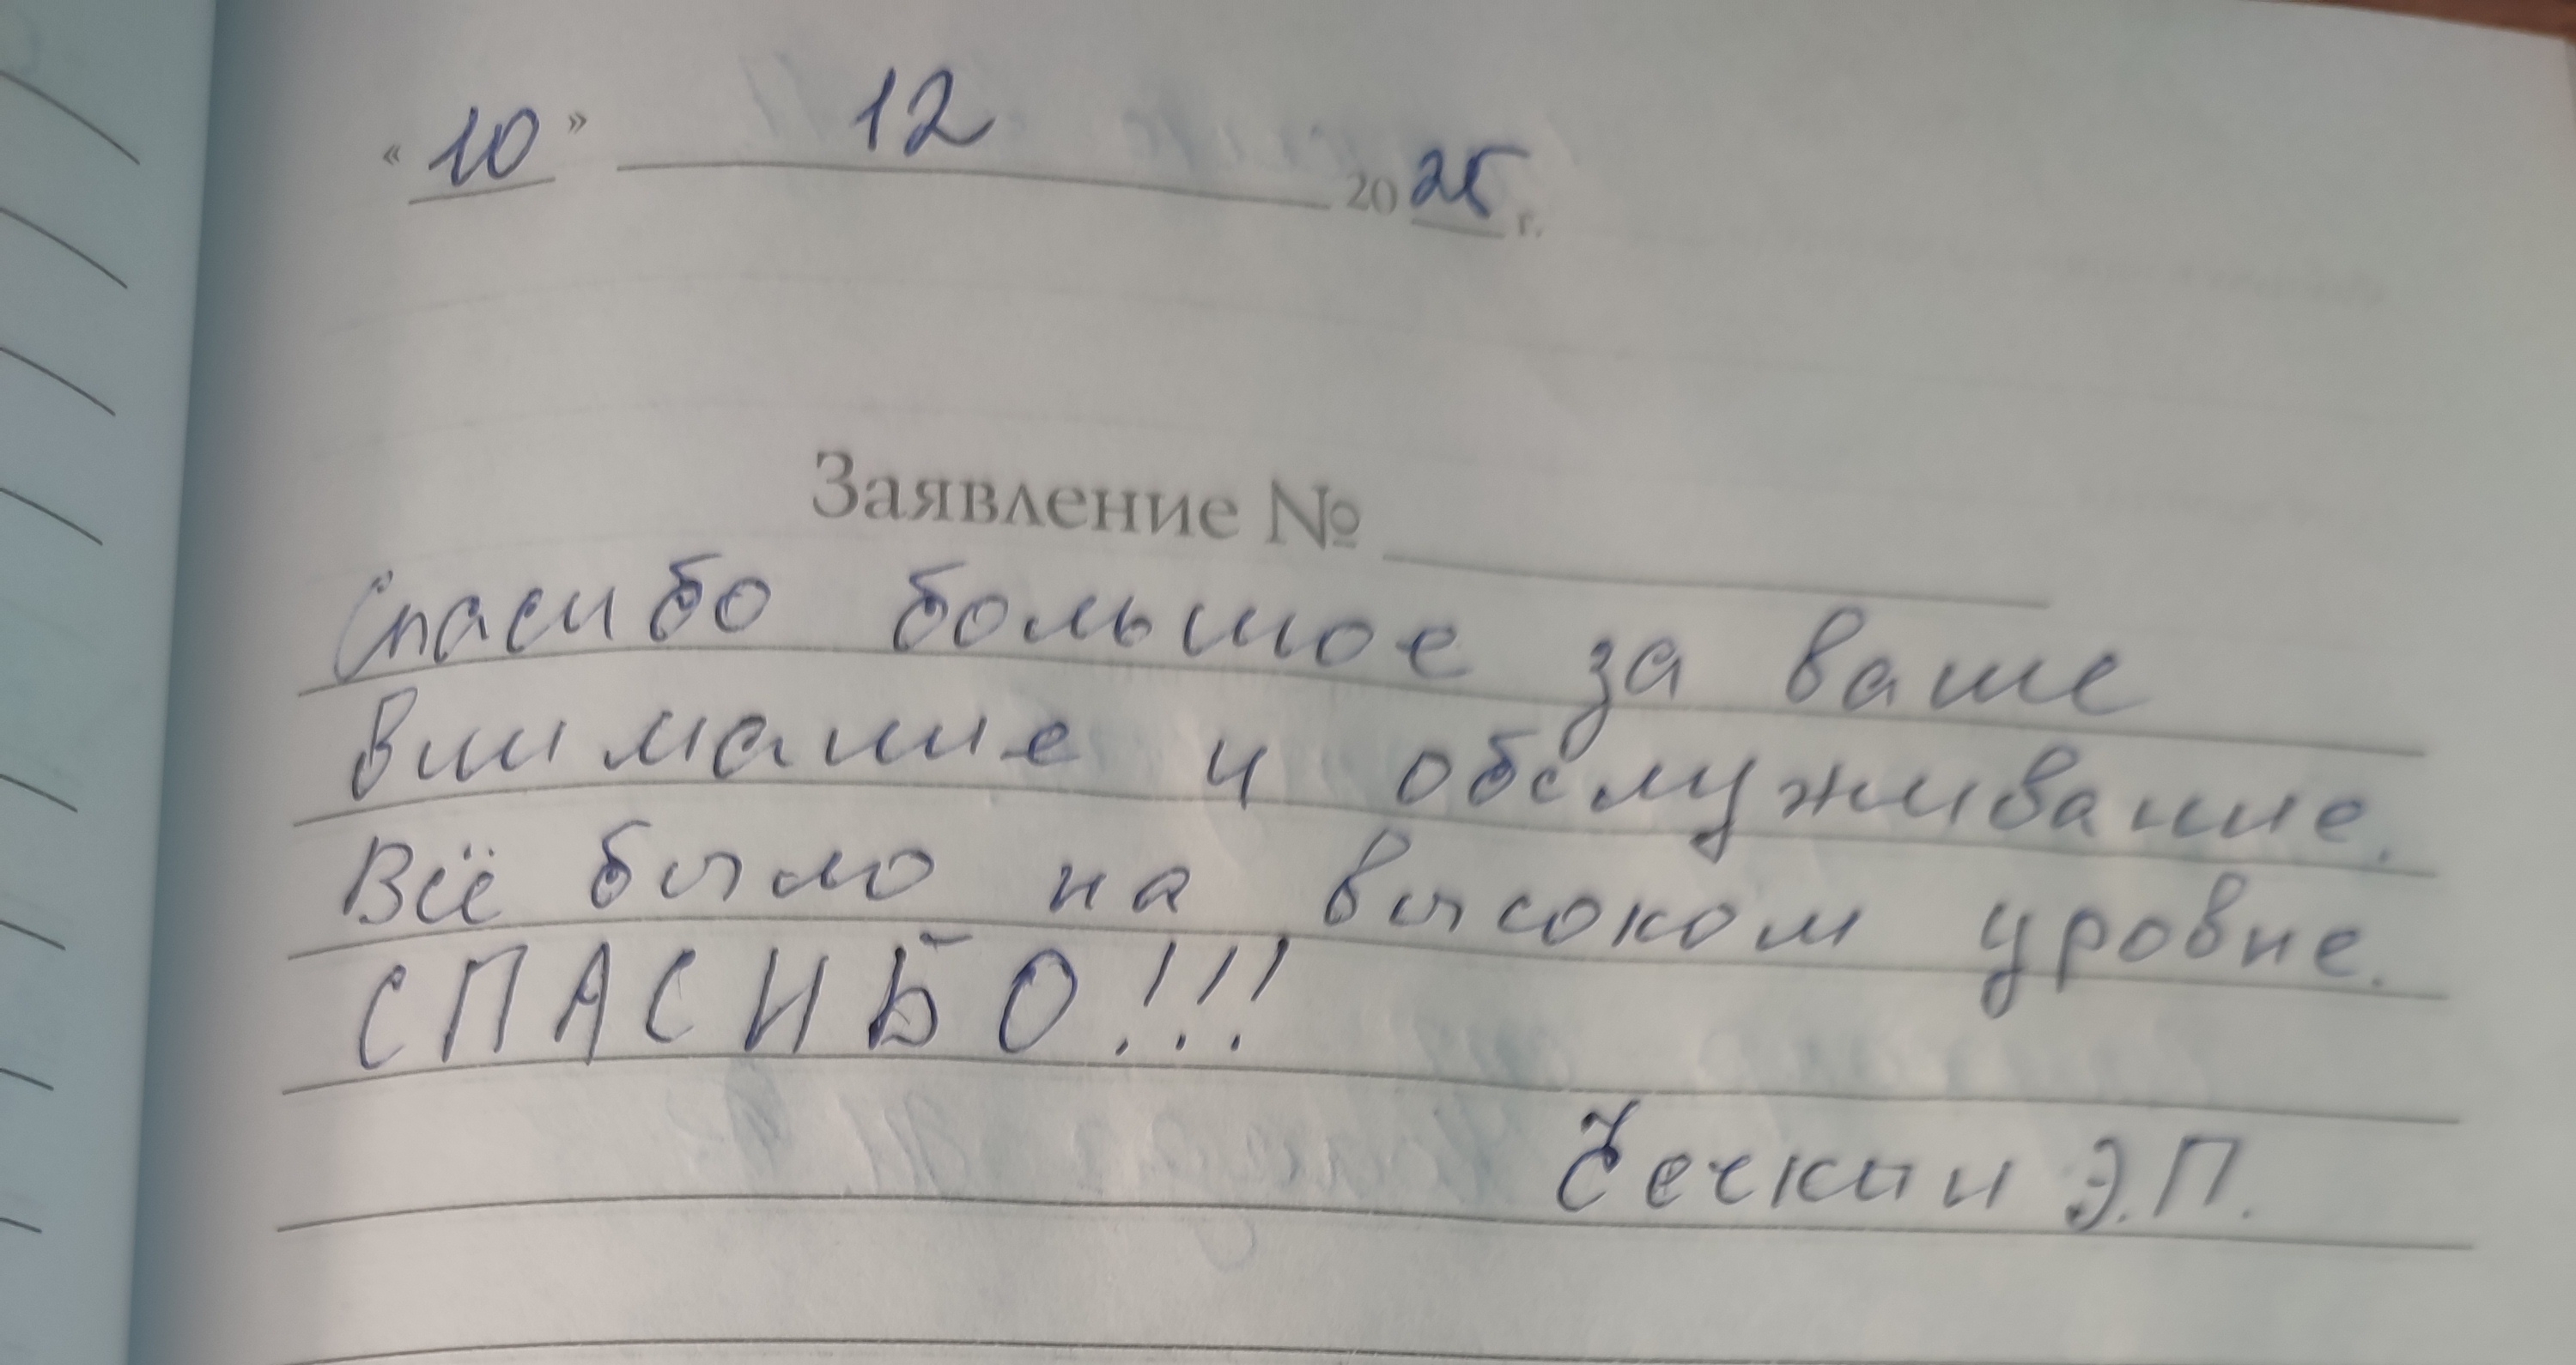 «10» 12 2025 г.
Заявление №
Спасибо большое за ваше
внимание и обслуживание.
Всё было на высоком уровне.
СПАСИБО!!!
Э.П.